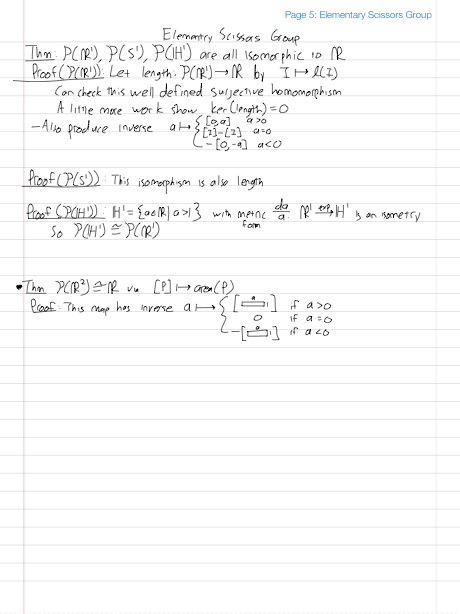 Page 5: Elementary Scissors Group
Elementry Scissors Group
Thm: P(ℝ¹), P(S¹), P(ℍ¹) are all isomorphic to ℝ
Proof (P(ℝ¹)): Let length: P(ℝ¹) → ℝ by I ↦ ℓ(I)
Can check this well defined surjective homomorphism
A little more work show ker(length) = 0
- Also produce inverse a ↦ { [0,a] a>0
[I]-[I] a=0
-[0,-a] a<0
Proof (P(S¹)): This isomorphism is also length
Proof (P(ℍ¹)): ℍ¹ = {a∈ℝ | a>1} with metric form da/a ℝ¹ exp→ ℍ¹ is an isometry
So P(ℍ¹) ≅ P(ℝ¹)
• Thm P(ℝ²) ≅ ℝ via [P] ↦ area(P)
Proof: This map has inverse a ↦ { [ a 1 ] if a>0
0 if a=0
-[ a 1 ] if a<0